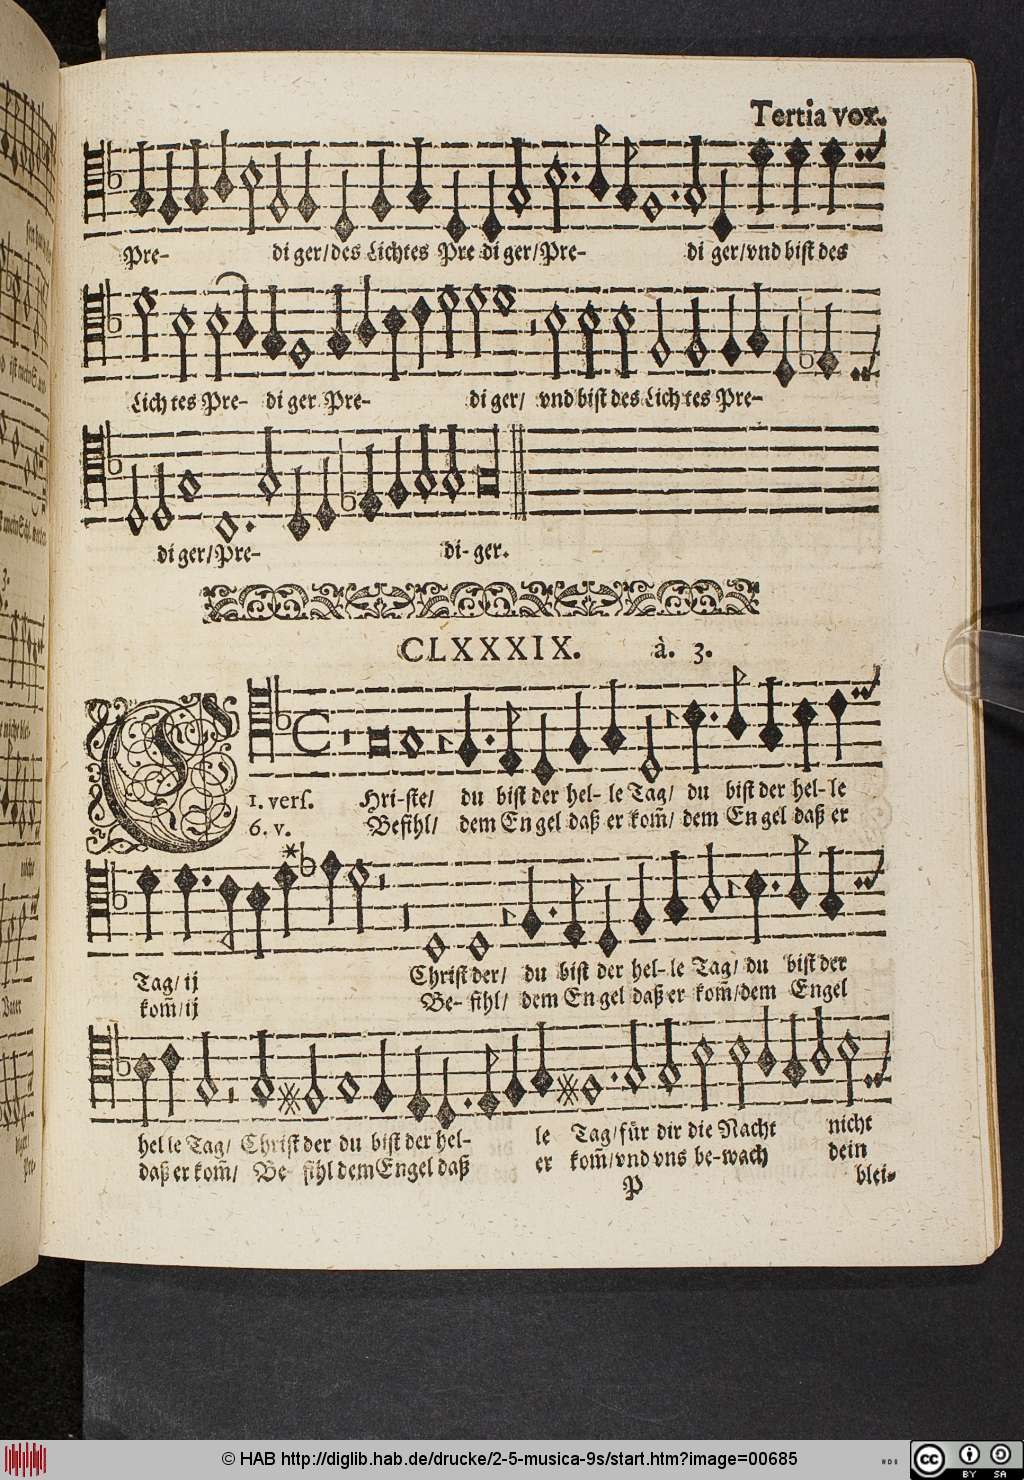 Tertia vox.
Pre- di ger/des Lichtes Pre di ger/Pre- di ger/vnd bist des
Lich tes Pre- di ger Pre- di ger/ vnd bist des Lich tes Pre-
di ger/Pre- di- ger.
CLXXXIX. à. 3.
C
1. vers. Hri-ste/ du bist der hel- le Tag/ du bist der hel- le
6. v. Befihl/ dem En gel daß er kom̃/ dem En gel daß er
Tag/ ij Christ der/ du bist der hel- le Tag/ du bist der
kom̃/ ij Be- fihl/ dem En gel daß er kom̃/dem Engel
hel le Tag/ Christ der du bist der hel- le Tag/für dir die Nacht nicht
daß er kom̃/ Be- fihl dem Engel daß er kom̃/vnd vns be-wach dein
P blei-
© HAB http://diglib.hab.de/drucke/2-5-musica-9s/start.htm?image=00685
cc BY SA